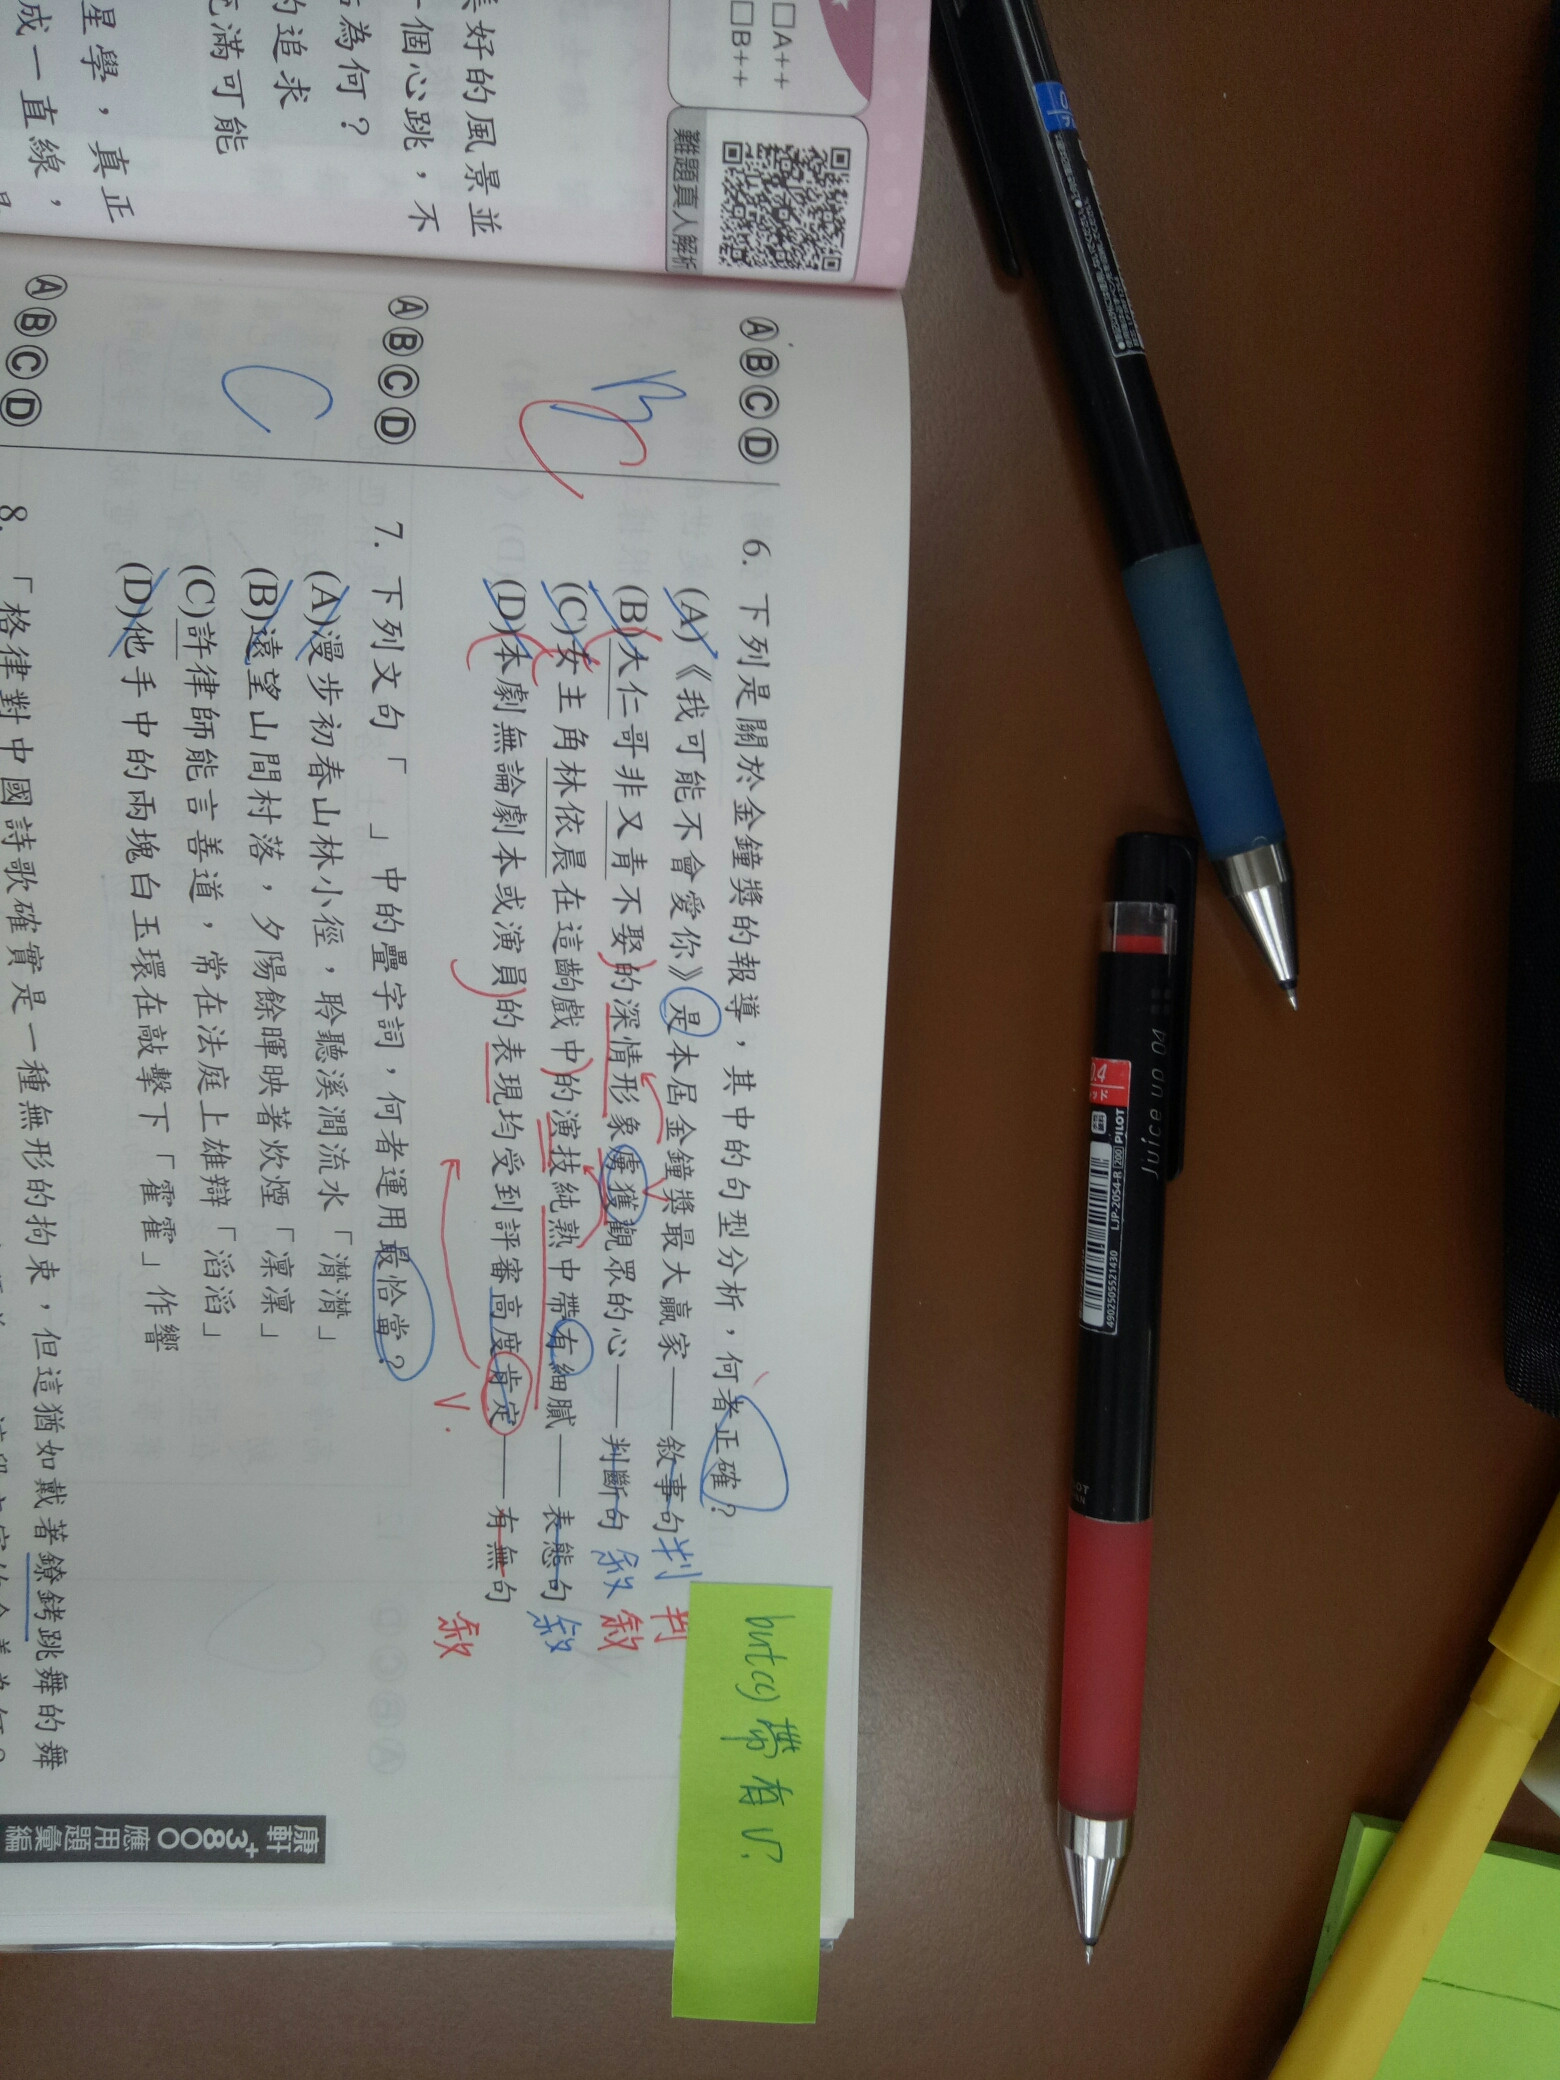 美好的風景並
一個心跳，不
為何？
的追求
充滿可能
星學，真正
成一直線，
□A++
□B++
難題真人解析
ⒶⒷⒸⒹ
6. 下列是關於金鐘獎的報導，其中的句型分析，何者正確？
(A)《我可能不會愛你》是本屆金鐘獎最大贏家——敘事句 判 判
(B)大仁哥非又青不娶的深情形象虜獲觀眾的心——判斷句 敘 敘
(C)女主角林依晨在這齣戲中的演技純熟中帶有細膩——表態句 敘
(D)本劇無論劇本或演員的表現均受到評審高度肯定——有無句 敘
V.
C
but(C)帶有V?
ⒶⒷⒸⒹ
C
7. 下列文句「　」中的疊字詞，何者運用最恰當？
(A)漫步初春山林小徑，聆聽溪澗流水「潸潸」
(B)遠望山間村落，夕陽餘暉映著炊煙「凜凜」
(C)許律師能言善道，常在法庭上雄辯「滔滔」
(D)他手中的兩塊白玉環在敲擊下「霍霍」作響
ⒶⒷⒸⒹ
8. 「格律對中國詩歌確實是一種無形的拘束，但這猶如戴著鐐銬跳舞的舞
康軒3800+應用題彙編
Juice up 04
0.4
PILOT
LJP-20S4-R [200]
4902505521430